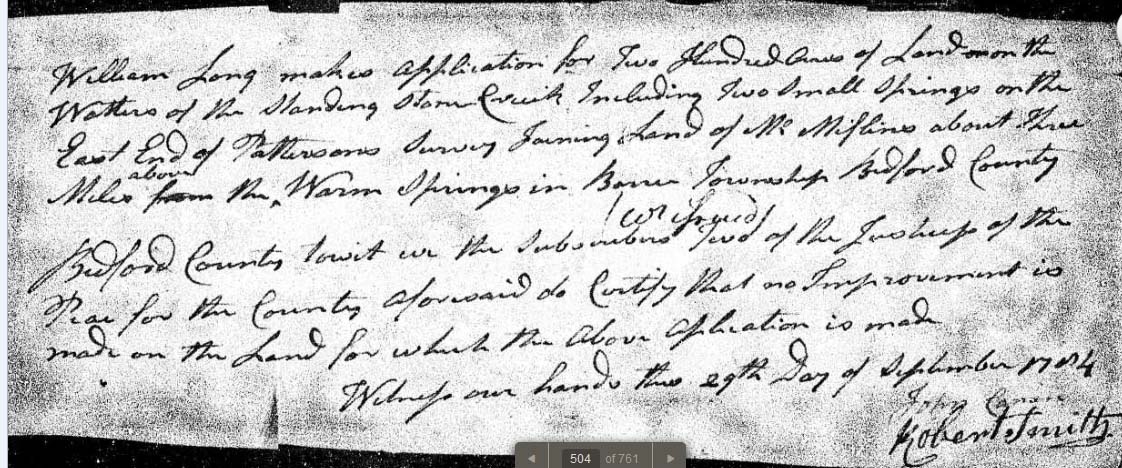 William Long makes application for Two Hundred Acres of Land on the
Watters of the Standing Stone Creeik Including Two Small Springs on the
East End of Pattersons Survey Joining Land of Mr Miflins about Three
above
Miles from the Warm Springs in Barree Township Bedford County
Bedford County towit we the Subscribers Two of the Justices of the
Peac for the County aforesaid do Certify that no Improvement is
made on the Land for which the above Aplication is made
Witness our hands this 29th Day of September 1784
John Canan
Robert Smith
504 of 761